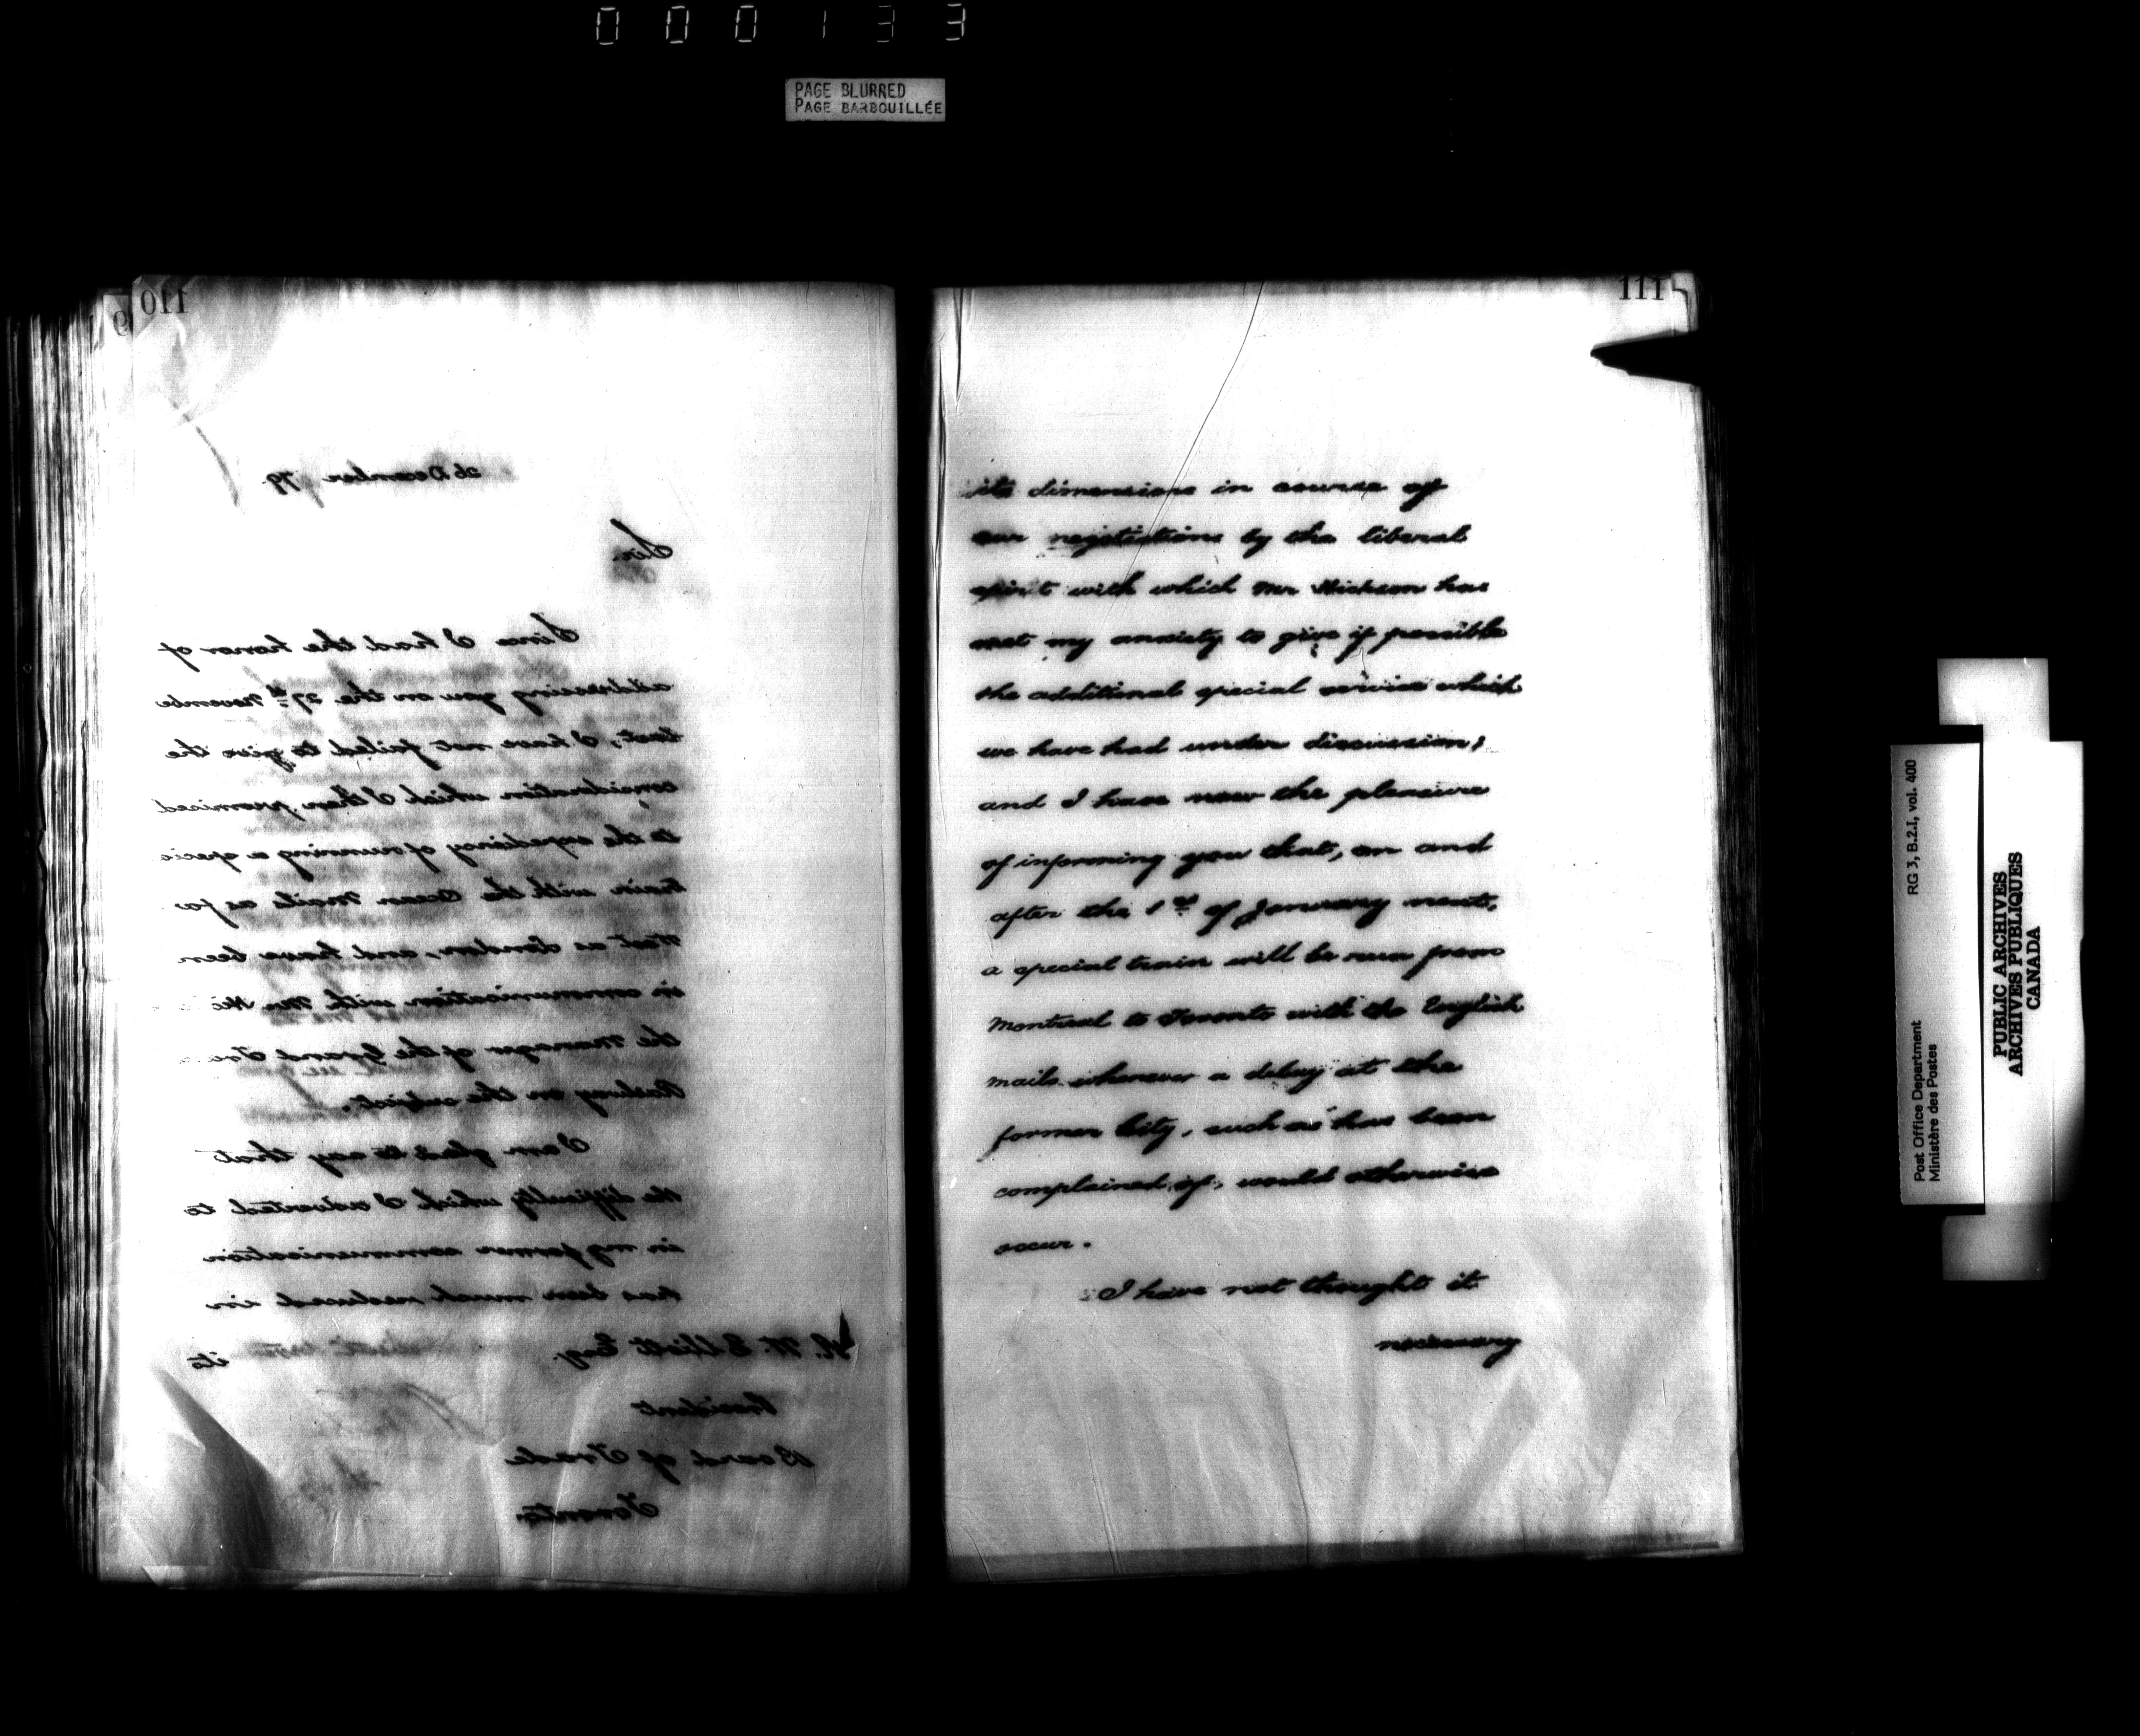 000133
PAGE BLURRED
PAGE BARBOUILLÉE
110
9
26 December 79.
Sir
Since I had the honor of
addressing you on the 27th Novembe
last, I have not failed to give the
consideration which I then promised
to the expediency of running a specia
train with the Ocean Mails as far
West as London, and have been
in communication with Mr Hic
the Manager of the Grand Trun
Railway on the subject.
I am glad to say that
the difficulty which I adverted to
in my former communication
has been much reduced in
its
W. Elliott Esq.
President
Board of Trade
Toronto
111
its dimensions in course of
our negotiations by the liberal
spirit with which Mr Hickson has
met my anxiety to give if possible
the additional special service which
we have had under discussion;
and I have now the pleasure
of informing you that, on and
after the 1st of January next,
a special train will be run from
Montreal to Toronto with the English
mails whenever a delay at the
former City, such as has been
complained of, would otherwise
occur.
I have not thought it
necessary
Post Office Department
Ministère des Postes
RG 3, B.2.I, vol. 400
PUBLIC ARCHIVES
ARCHIVES PUBLIQUES
CANADA